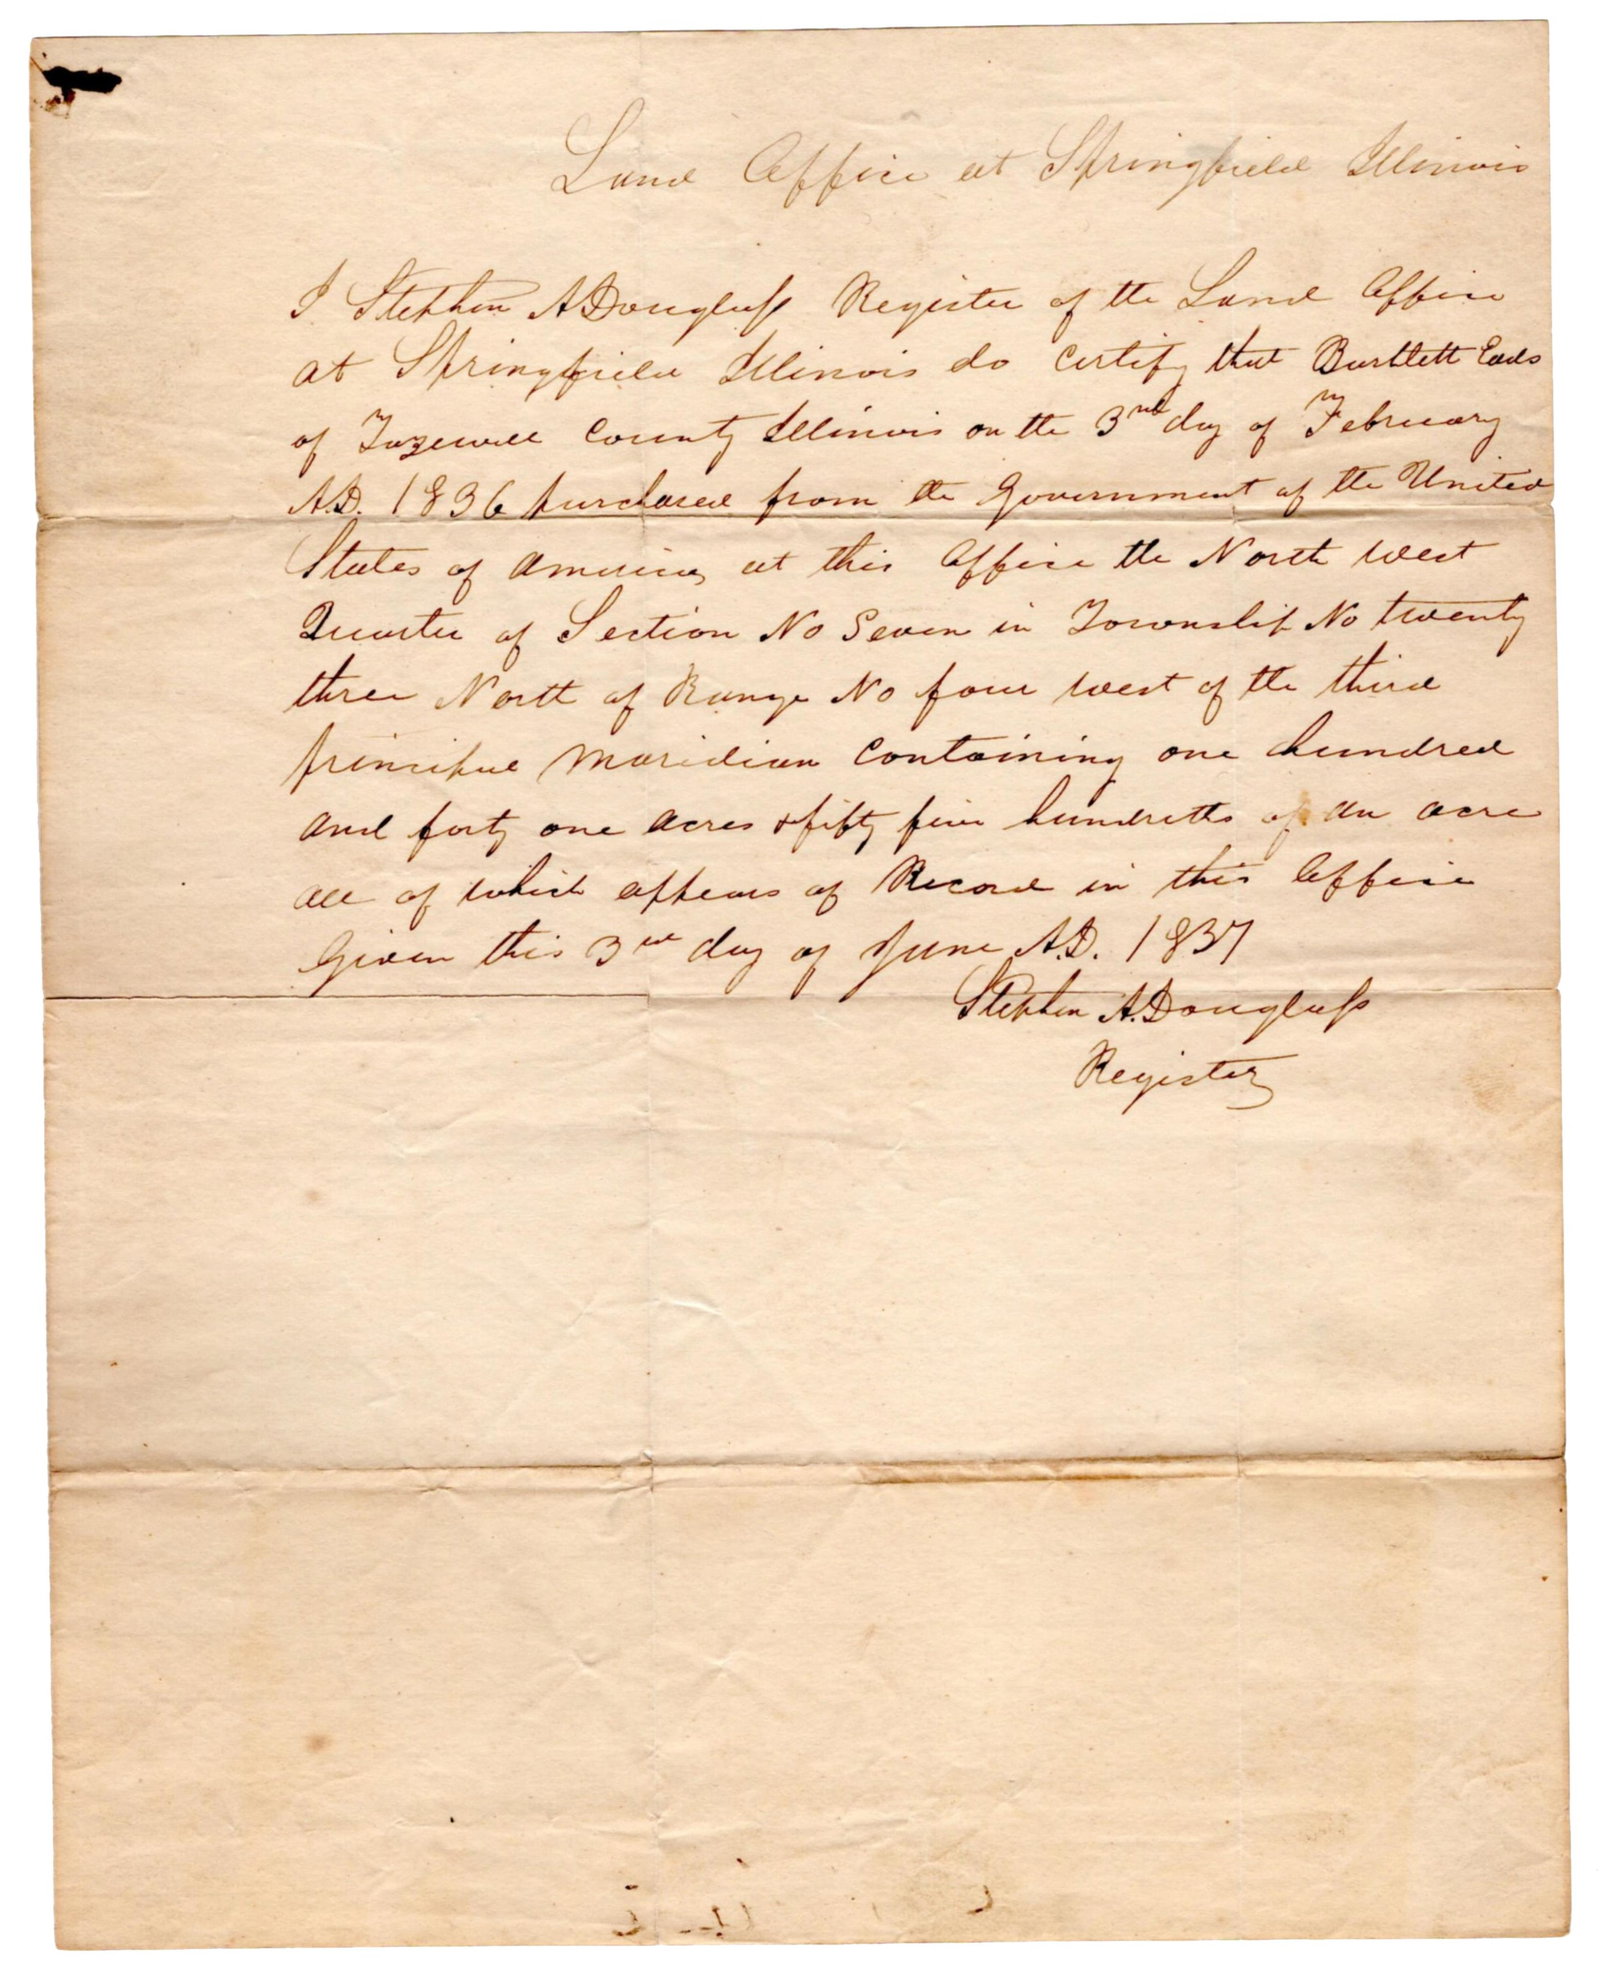 Land Office at Springfield Illinois
I Stephen A Douglass Register of the Land Office
at Springfield Illinois do certify that Bartlett Eads
of Tazewell County Illinois on the 3rd day of February
A.D. 1836 purchased from the Government of the United
States of America at this Office the North West
Quarter of Section No Seven in Township No twenty
three North of Range No four West of the third
principal Maridian containing one hundred
and forty one acres & fifty five hundreths of an acre
all of which appears of Record in this Office
Given this 3rd day of June A.D. 1837
Stephen A. Douglass
Register